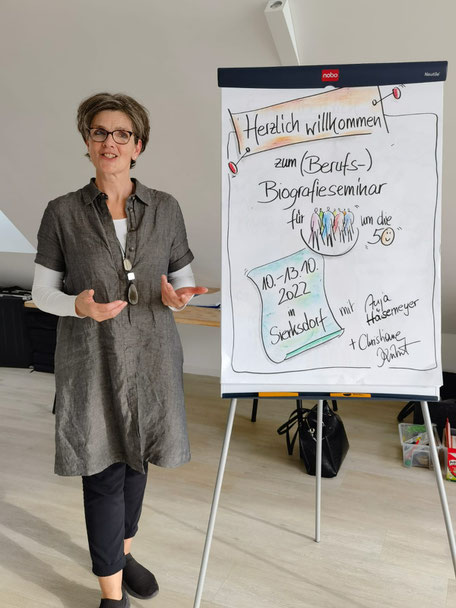 nobo
Nautile
Herzlich willkommen
zum (Berufs-)
Biografieseminar
für um die
50
10.-13.10.
2022
in
Sierksdorf
mit Anja
Häsemeyer
+ Christiane